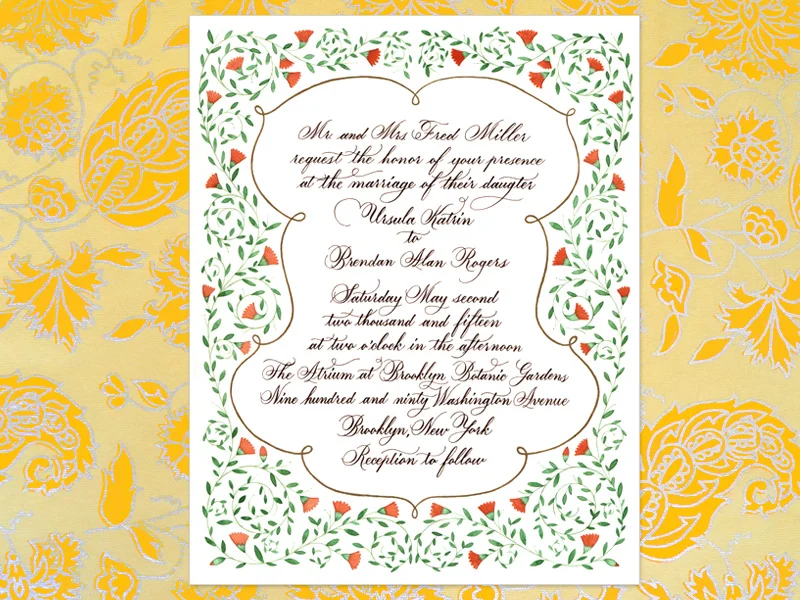 Mr. and Mrs Fred Miller
request the honor of your presence
at the marriage of their daugter
Ursula Katrin
to
Brendan Alan Rogers
Saturday May second
two thousand and fifteen
at two o'clock in the afternoon
The Atrium at Brooklyn Botanic Gardens
Nine hundred and ninty Washington Avenue
Brooklyn, New York
Reception to follow